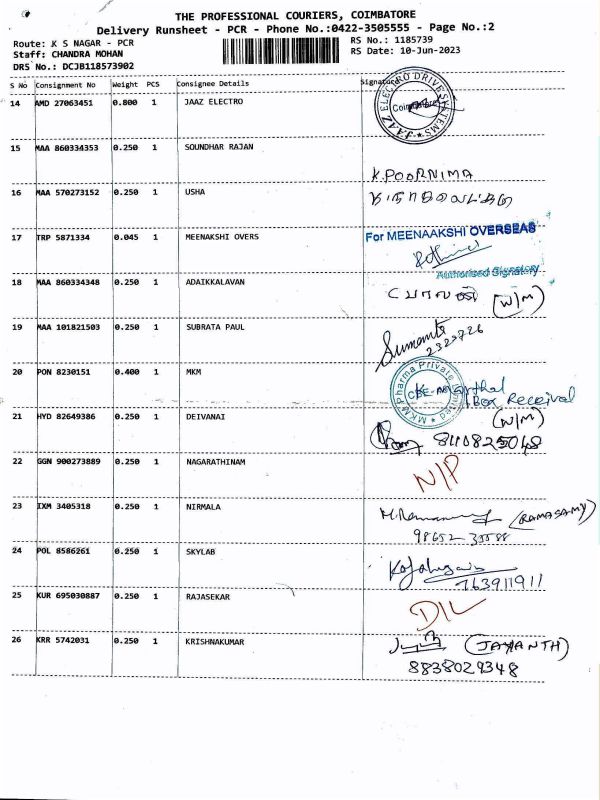 THE PROFESSIONAL COURIERS, COIMBATORE
Delivery Runsheet - PCR - Phone No.:0422-3505555 - Page No.:2
Route: K S NAGAR - PCR
RS No.: 1185739
Staff: CHANDRA MOHAN
RS Date: 10-Jun-2023
DRS No.: DCJB118573902
S No Consignment No Weight PCS Consignee Details Signature
14 AMD 27063451 0.800 1 JAAZ ELECTRO
JAAZ ELECTRO DRIVE SYSTEMS
Coimbatore
15 MAA 860334353 0.250 1 SOUNDHAR RAJAN
K.POORNIMA
16 MAA 570273152 0.250 1 USHA
17 TRP 5871334 0.045 1 MEENAKSHI OVERS
For MEENAAKSHI OVERSEAS
Authorised Signatory
18 MAA 860334348 0.250 1 ADAIKKALAVAN
(W/M)
19 MAA 101821503 0.250 1 SUBRATA PAUL
Sumanta
2322726
20 PON 8230151 0.400 1 MKM
MKM Pharma Private Limited
CBE
Box Received
21 HYD 82649386 0.250 1 DEIVANAI
(W/M)
22 GGN 900273889 0.250 1 NAGARATHINAM
N/P
23 IXM 3405318 0.250 1 NIRMALA
(RAMASAMY)
24 POL 8586261 0.250 1 SKYLAB
763911911
25 KUR 695030887 0.250 1 RAJASEKAR
D/L
26 KRR 5742031 0.250 1 KRISHNAKUMAR
(JAYANTH)
8838029348